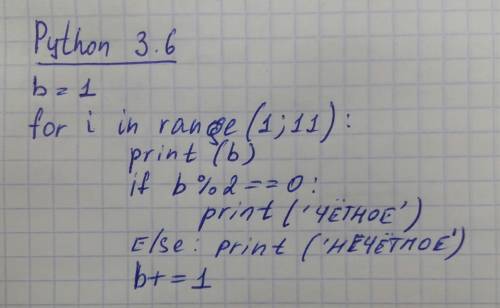 Python 3.6
b = 1
for i in range (1;11):
print (b)
if b%2==0:
print ('ЧЁТНОЕ')
Else: print ('НЕЧЁТНОЕ')
b+=1